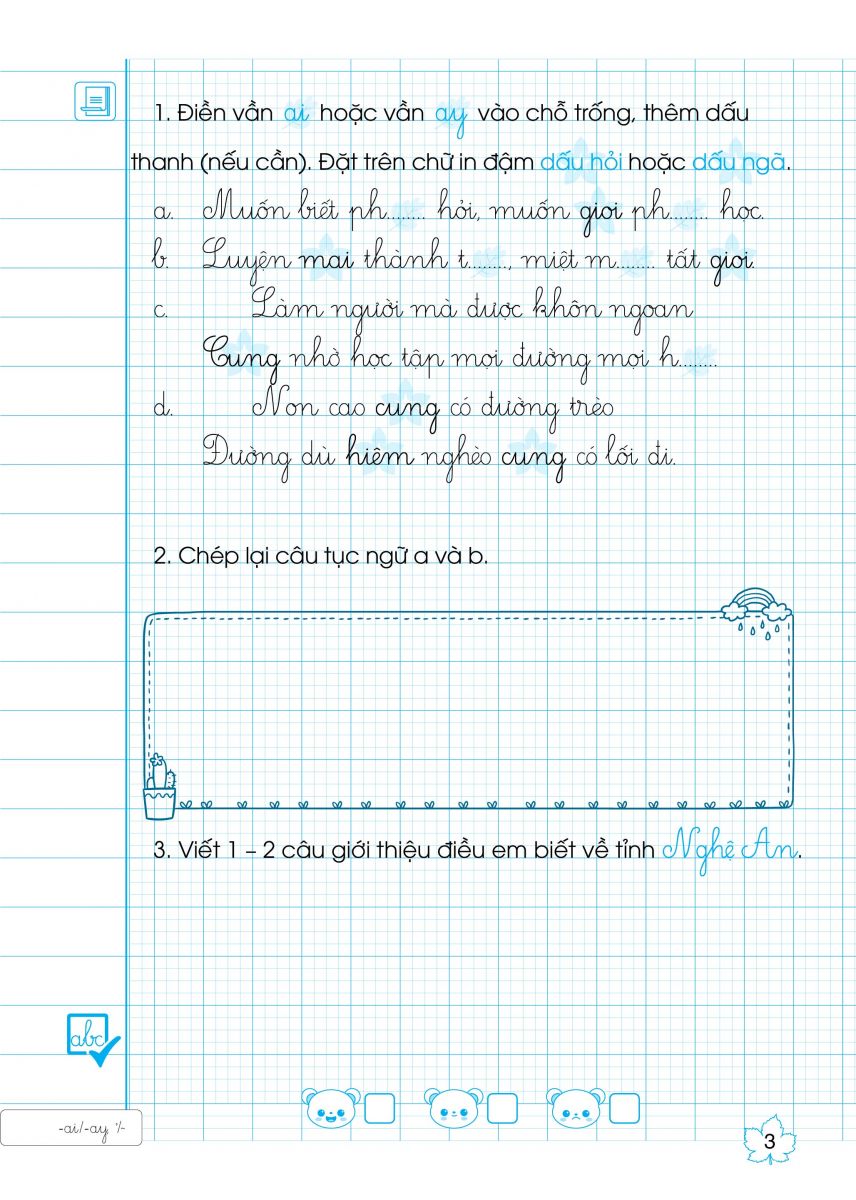 1. Điền vần ai hoặc vần ay vào chỗ trống, thêm dấu
thanh (nếu cần). Đặt trên chữ in đậm dấu hỏi hoặc dấu ngã.
a. Muốn biết ph........ hỏi, muốn gioi ph........ học.
b. Luyện mai thành t........, miệt m........ tất gioi.
c. Làm người mà được khôn ngoan
Cung nhờ học tập mọi đường mọi h........
d. Non cao cung có đường trèo
Đường dù hiêm nghèo cung có lối đi.
2. Chép lại câu tục ngữ a và b.
3. Viết 1 – 2 câu giới thiệu điều em biết về tỉnh Nghệ An.
abc
-ai/-ay ̉/~
3